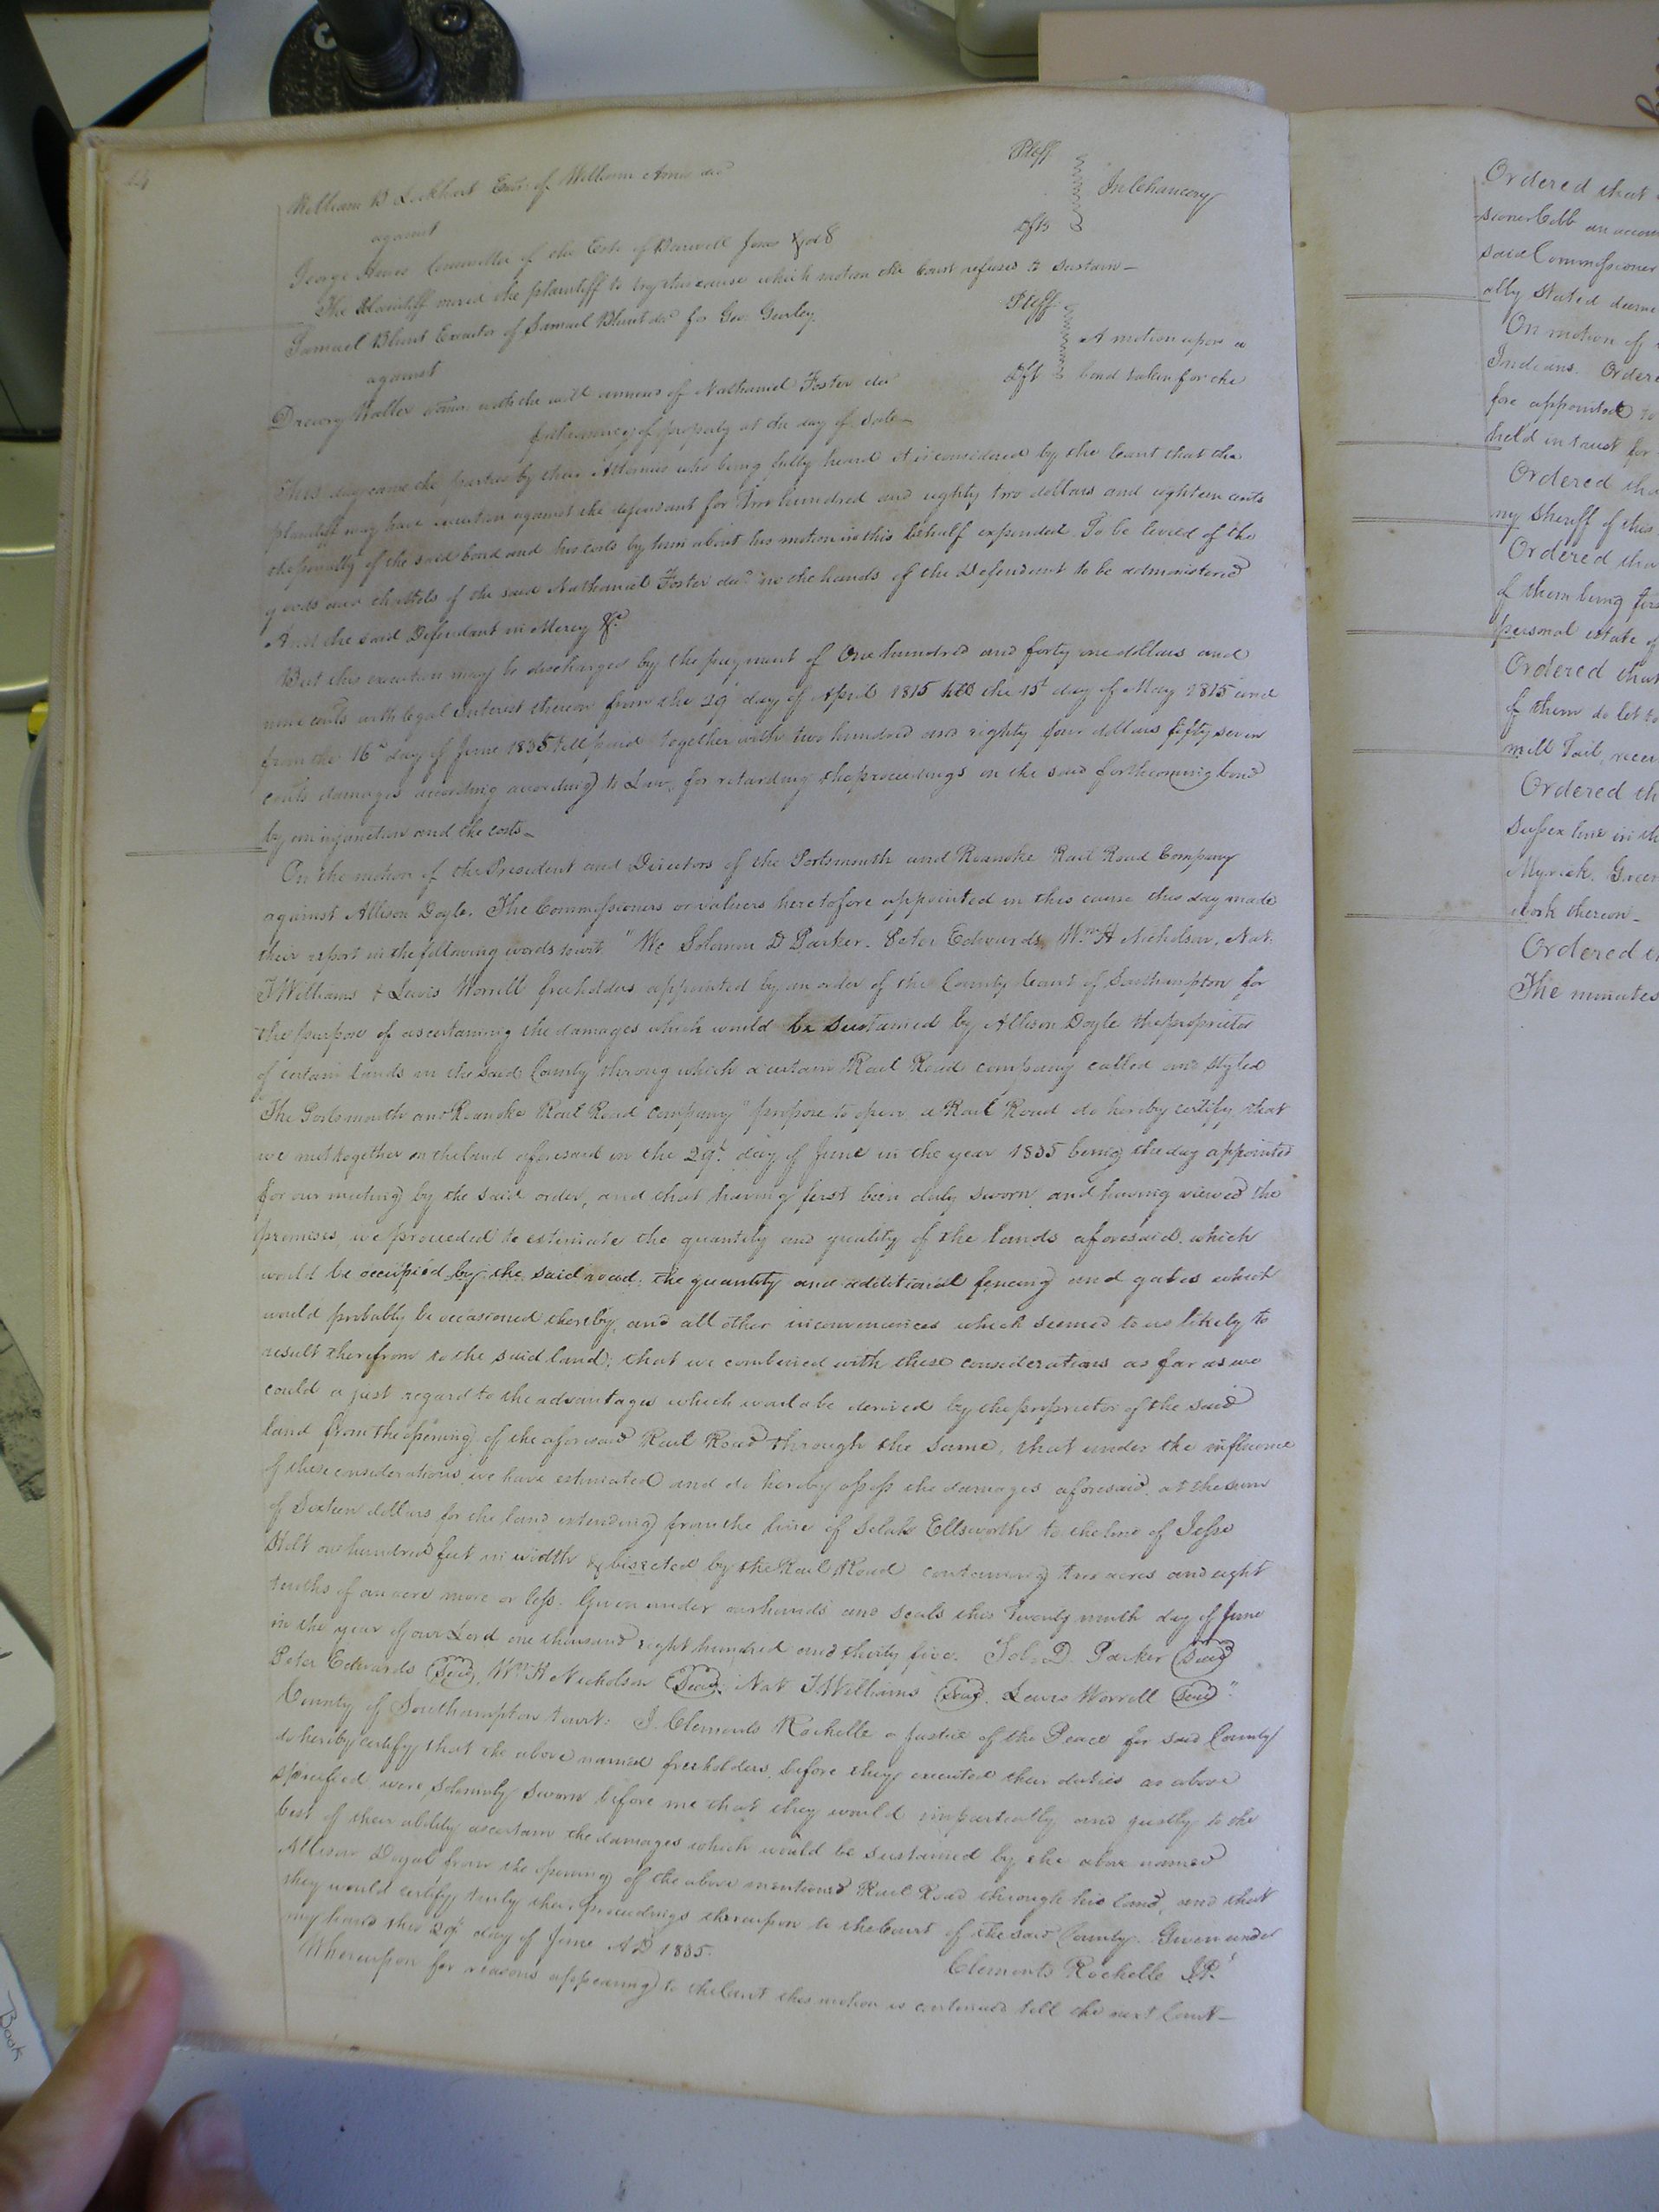 William B Lockhart Exor. of William Amis decd Pltff
against In Chancery
George Committee of the Este of Burwell Jones &others Dfts
The Plaintiff moved the plaintiff to try this cause which motion the Court refused to sustain—
Samuel Blunt Executor of Samuel Blunt decd for Geo. Gurley Pltff
against A motion upon a
Drewry Waller with the will annexed of Nathaniel Foster decd Dft bond taken for the
forthcoming of property at the day of sale—
This day came the parties by their Attornies who being fully heard it is considered by the Court that the
plaintiff may have execution against the defendant for Two hundred and eighty two dollars and eighteen cents
the penalty of the said bond and his costs by him about his motion in this behalf expended To be levied of the
goods and chattels of the said Nathaniel Foster decd in the hands of the Defendant to be administered
And the said Defendant in Mercy &c.
But this execution may be discharged by the payment of One hundred and forty one dollars and
nine cents with legal interest thereon from the 29 day of April 1815 till the 15t day of May 1815 and
from the 16th day of June 1835 till paid together with two hundred and eighty four dollars fifty seven
cents damages according according to Law, for retarding the proceedings on the said forthcoming bond
by an injunction and the costs—
On the motion of the President and Directors of the Portsmouth and Roanoke Rail Road Company
against Allison Doyle. The Commissioners or valuers heretofore appointed in this cause this day made
their report in the following words towit. "We Solomon D Parker. Peter Edwards, Wm H Nicholson, Nat.
T Williams & Lewis Worrell freeholders appointed by an order of the County Court of Southampton for
the purpose of ascertaining the damages which would be sustained by Allison Doyle the proprietor
of certain lands in the said County throug which a certain Rail Road company called and styled
The Portsmouth and Roanoke Rail Road Company" propose to open a Rail Road do hereby certify that
we met together on the land aforesaid on the 29t day of June in the year 1835 being the day appointed
for our meeting by the said order, and that having first been duly sworn, and having viewed the
premises, we proceeded to estimate the quantity and quality of the lands aforesaid. which
would be occupied by the said road; the quantity and additional fencing and gates which
would probably be occasioned thereby, and all other inconveniences which seemed to us likely to
result therefrom to the said land; that we combined with these considerations as far as we
could a just regard to the advantages which would be derived by the proprietor of the said
land from the opening of the aforesaid Rail Road through the same; that under the influence
of these considerations we have estimated and do hereby assess the damages aforesaid. at the sum
of Sixteen dollars for the land extending from the line of Selah Ellsworth to the line of Jesse
Holt one hundred feet in width & bisected by the Rail Road containing two acres and eight
tenths of an acre more or less. Given under our hands and seals this Twenty ninth day of June
in the year of our Lord one thousand eight hundred and thirty five. Sol. D. Parker Seal
Peter Edwards Seal, Wm H Nicholson Seal. Nat T Williams Seal. Lewis Worrell Seal".
County of Southampton towit: I Clements Rochelle a Justice of the Peace for said County
do hereby certify that the above named freeholders, before they executed their duties as above
specified were solemnly sworn before me that they would impartially and justly to the
best of their ability ascertain the damages which would be sustained by the above named
Allison Doyal from the opening of the above mentioned Rail Road through his land, and that
they would certify truly their proceedings thereupon to the Court of the said County. Given under
my hand this 29t day of June AD 1835. Clements Rochelle J.P.
Whereupon for reasons appearing to the Court this motion is continued till the next Court—
Ordered that
sioner Cobb an accou
said Commissioner
ally stated
On motion of
Indians. Ordere
fore appointed to
held in trust for
Ordered tha
ny Sheriff of this
Ordered tha
of them being firs
personal estate of
Ordered that
of them do let to
mill tail,
Ordered th
Sussex line in th
Myrick. Green
work thereon—
Ordered
The minutes
Book